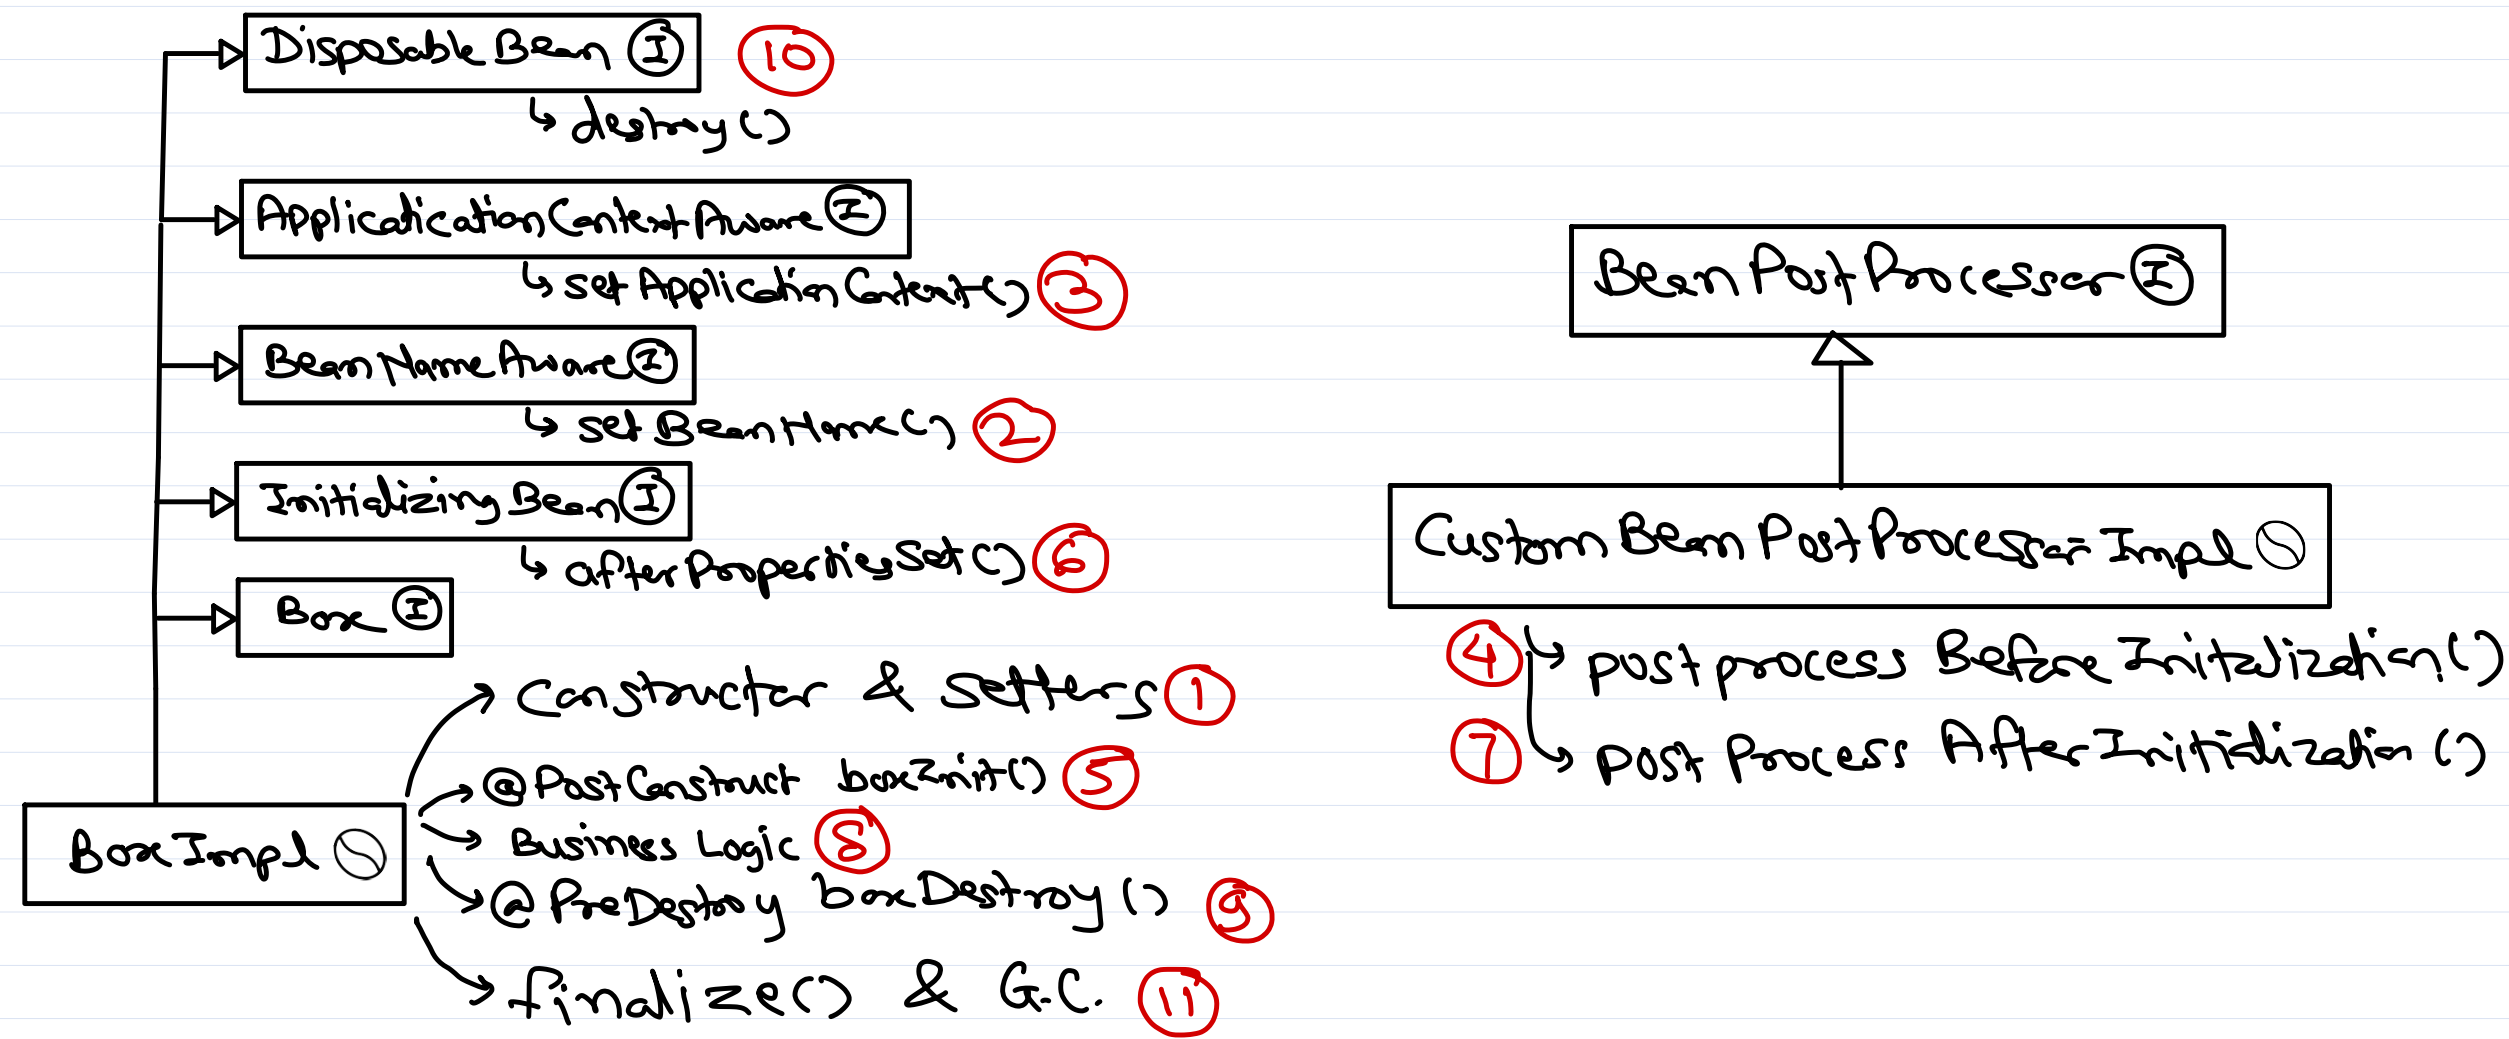 Disposable Bean I 10
↳ destroy()
Application Context Aware I
↳ set Application Context() 3
Bean Name Aware I
↳ set Bean Name() 2
Initializing Bean I
↳ after Properties Set() 6
Box I
Constructor & Setting 1
@PostConstruct boxInit() 5
Business Logic 8
@PreDestroy boxDestroy() 9
finalize() & G.C. 11
BoxImpl
Bean Post Processor I
Custom Bean Post Processor Impl
4 post process Before Initialization()
7 Post Process After Initialization()